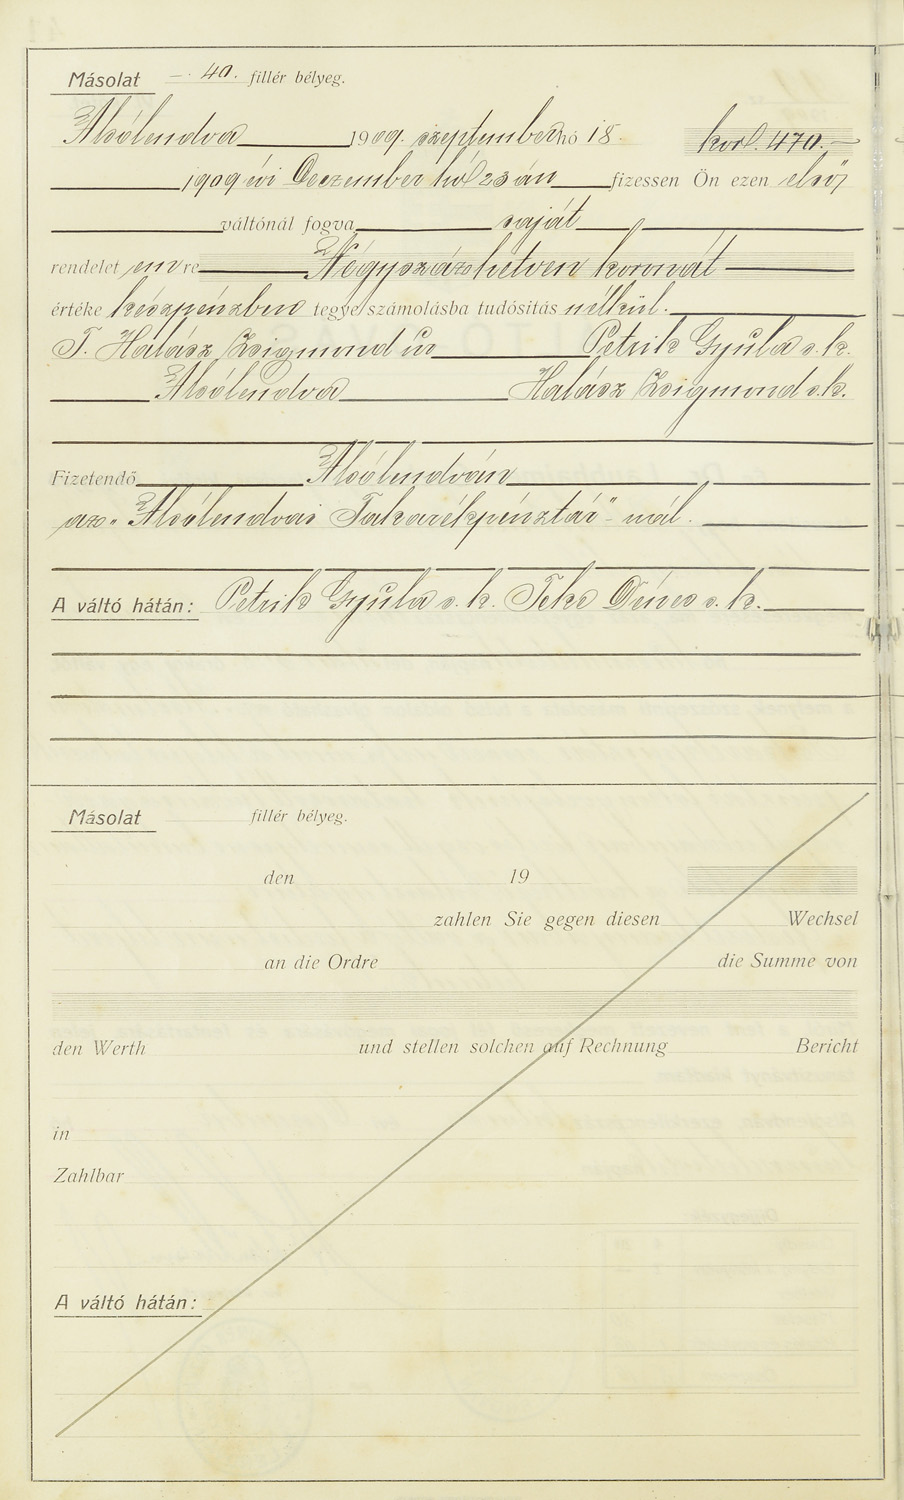 Másolat —. 40. fillér bélyeg.
Alsólendva 1909. szeptember hó 18. kor. 470.—
1909 évi Deczember hó 23 án fizessen Ön ezen első
váltónál fogva saját
rendelet em re Négyszázhetven koronát
értéke készpénzben tegye számolásba tudósitás nélkül.
T. Halász Zsigmond úr Petrik Gyula s. k.
Alsólendva Halász Zsigmond s.k.
Fizetendő Alsólendván
az „Alsólendvai Takarékpénztár"-nál.
A váltó hátán: Petrik Gyula s. k. Teke Dénes s. k.
Másolat fillér bélyeg.
den 19
zahlen Sie gegen diesen Wechsel
an die Ordre die Summe von
den Werth und stellen solchen auf Rechnung Bericht
in
Zahlbar
A váltó hátán: